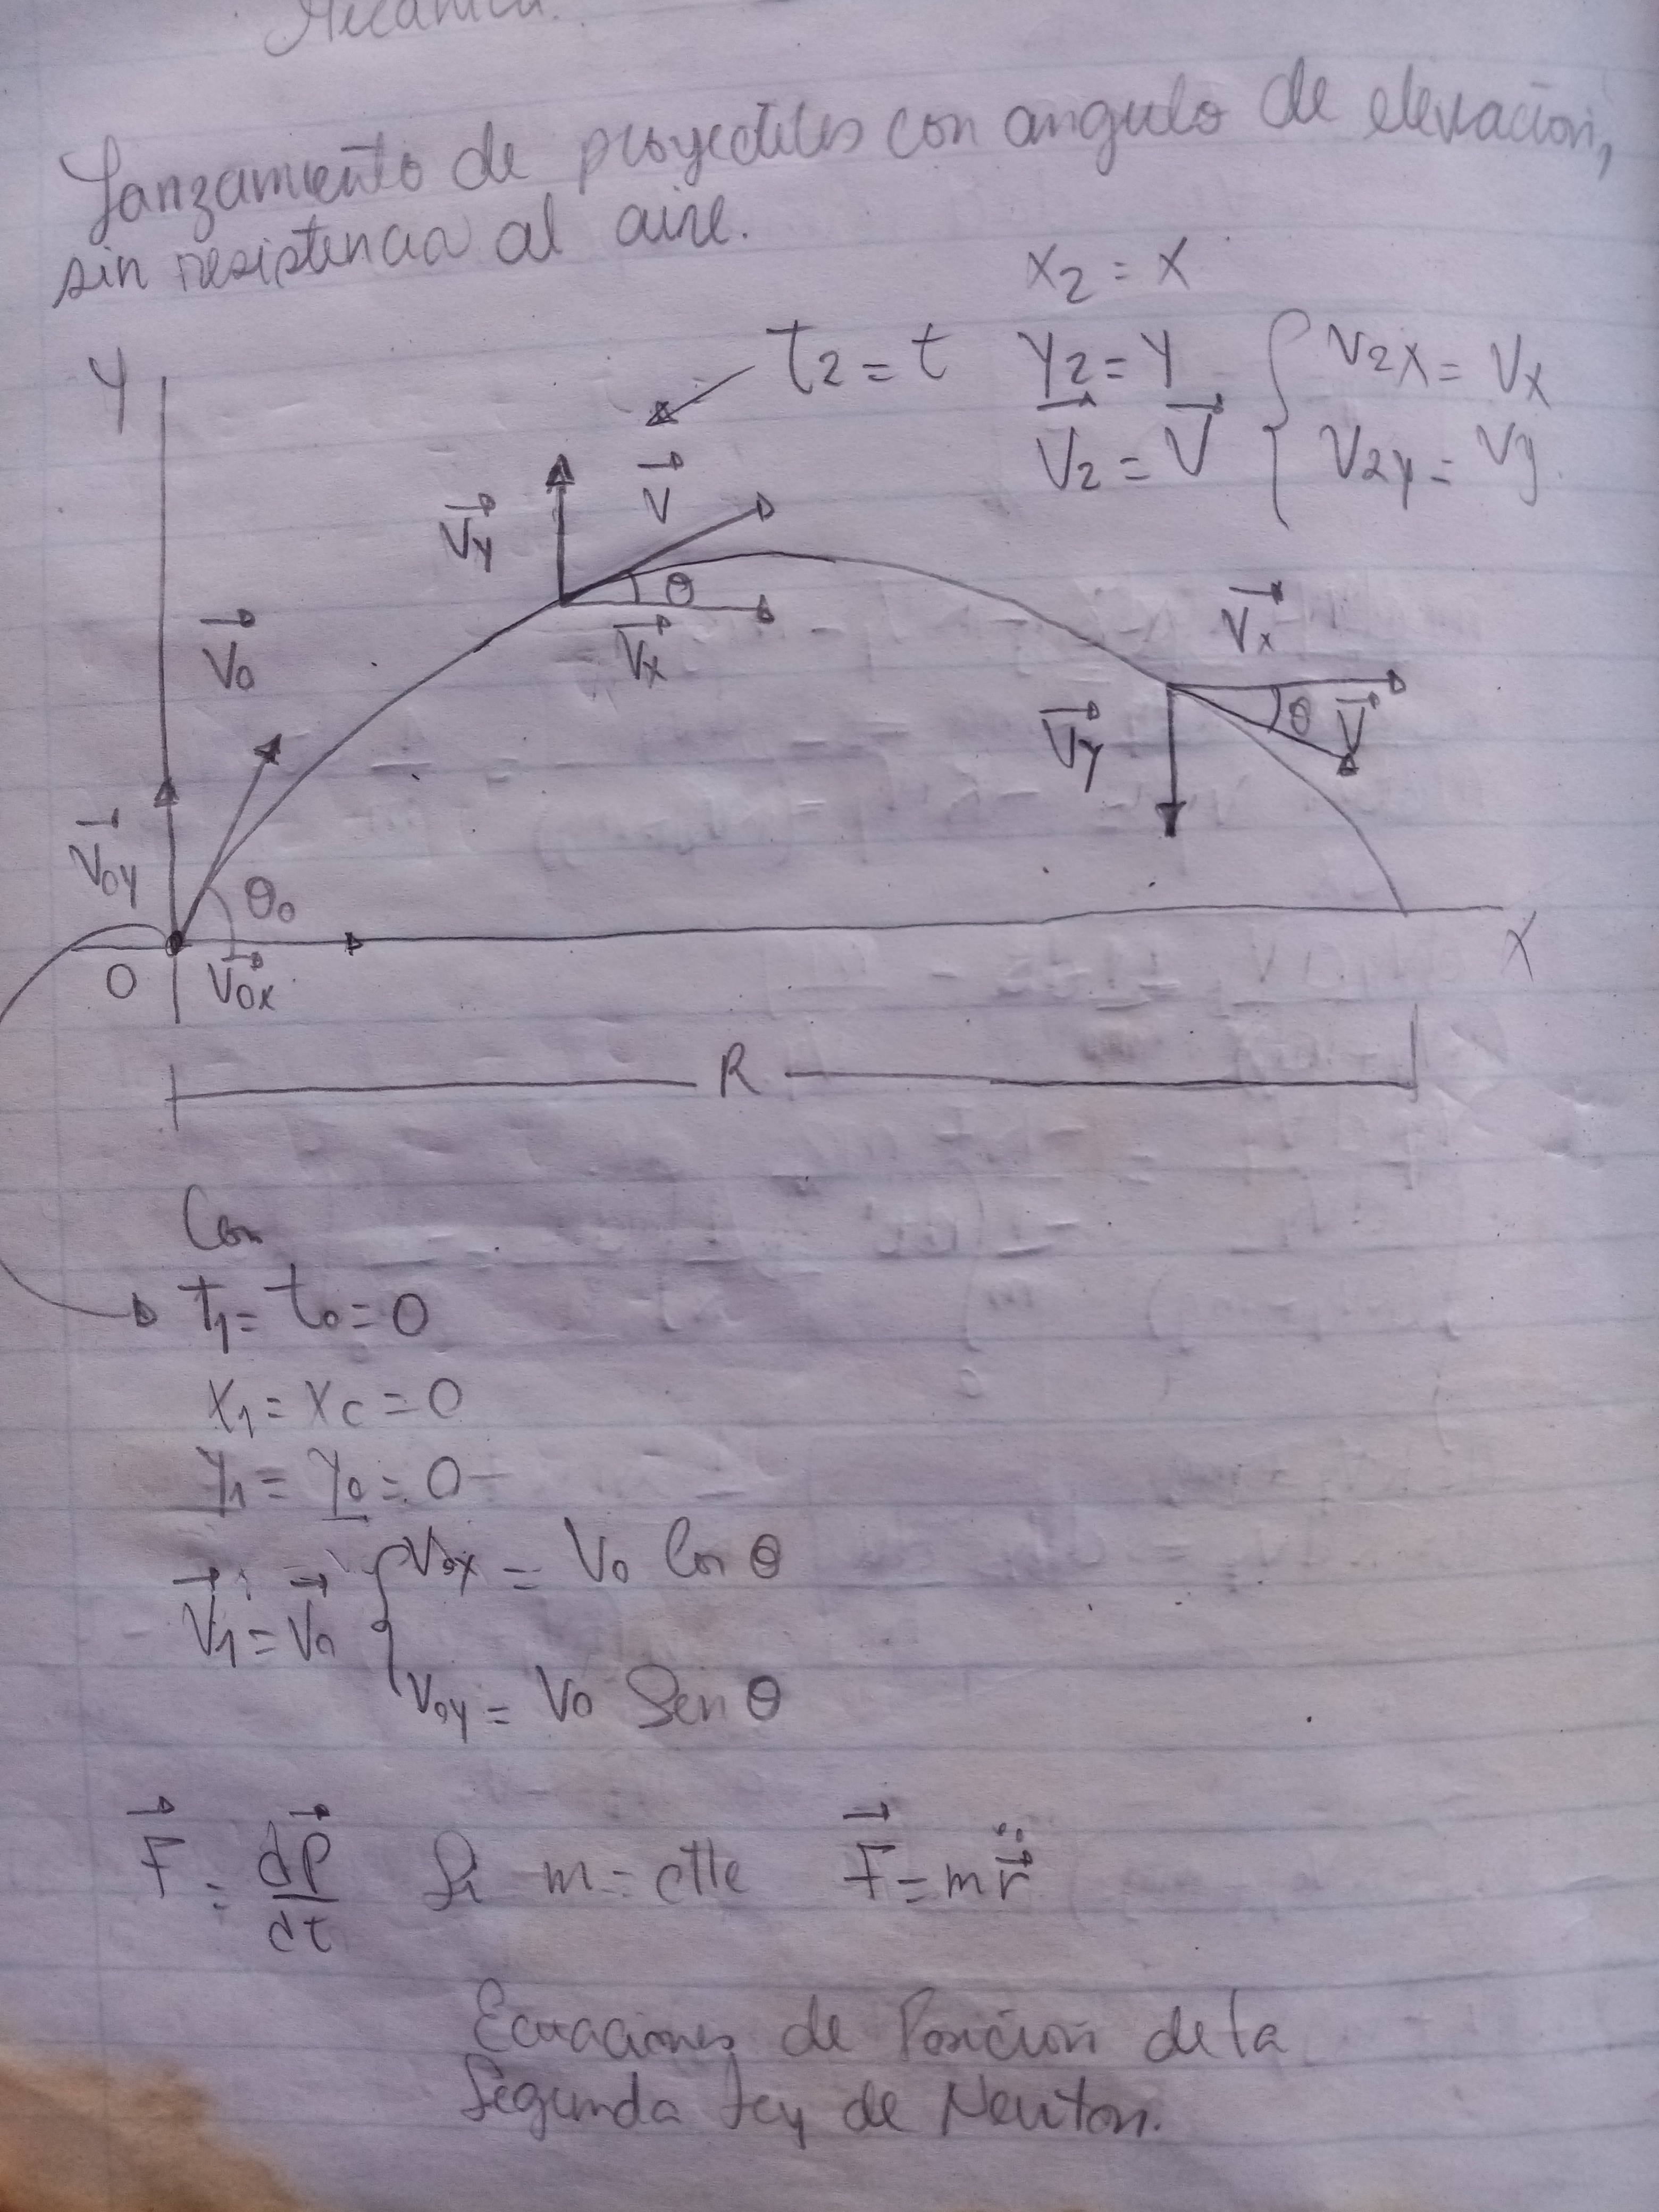 Mecánica.
Lanzamiento de proyectiles con angulo de elevación,
sin resistencia al aire.
x₂ = x
t₂ = t y₂ = y { V₂x = Vx
V⃗₂ = V⃗ { V₂y = Vy.
Y
V⃗y V⃗
θ
V⃗x
V⃗₀
V⃗x
V⃗y θ V⃗
V⃗₀y
θ₀
O V⃗₀x X
R
Con
t₁ = t₀ = 0
x₁ = x₀ = 0
y₁ = y₀ = 0
V⃗₁ = V⃗₀ { V₀x = V₀ Cos θ
V₀y = V₀ Sen θ
F⃗ = dP⃗/dt Si m = ctte F⃗ = m r⃗̈
Ecuaciones de Posición de la
Segunda Ley de Newton.